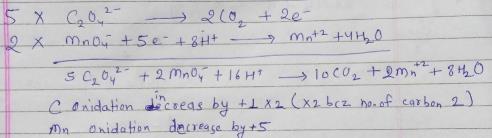 5 × C₂O₄²⁻ ⟶ 2CO₂ + 2e⁻
2 × MnO₄⁻ + 5e⁻ + 8H⁺ ⟶ Mn⁺² + 4H₂O
5C₂O₄²⁻ + 2MnO₄⁻ + 16H⁺ ⟶ 10CO₂ + 2Mn⁺² + 8H₂O
C onidation increas by +1 × 2 (×2 bcz no. of carbon 2)
Mn onidation decrease by +5